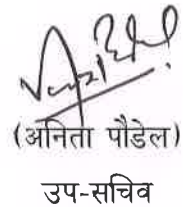 (अनिता पौडेल)
उप-सचिव